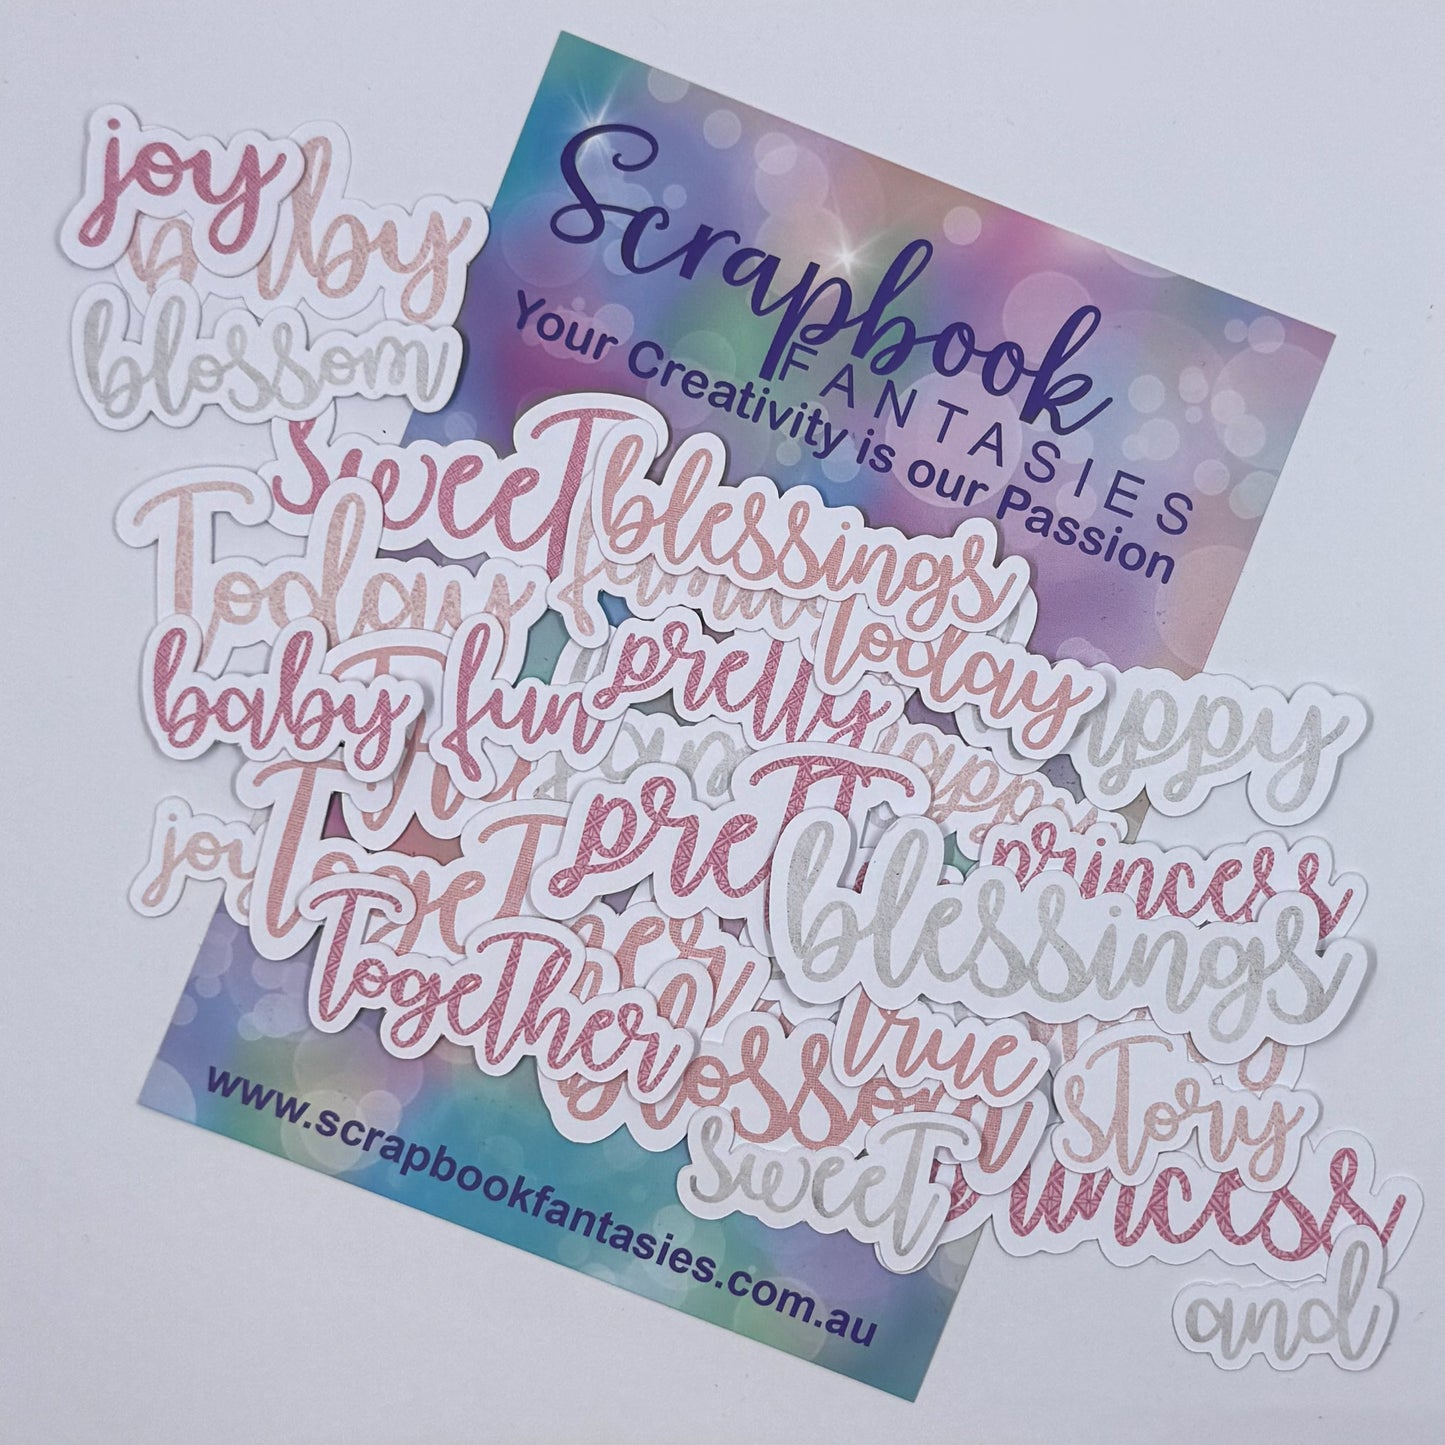 Scrapbook
FANTASIES
Your Creativity is our Passion
joy
by
blossom
Sweet
blessings
Today
family
today
baby
fun
pretty
happy
happy
joy
Together
pretty
princess
blessings
Together
true
blossom
story
sweet
princess
and
www.scrapbookfantasies.com.au